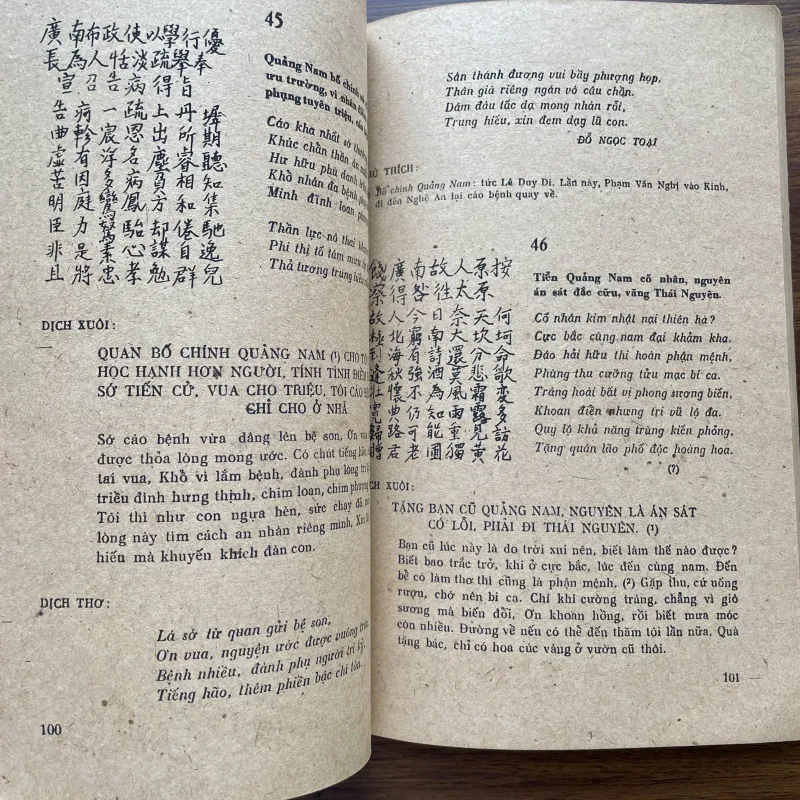 45
廣南布政使以學行優
長為人恬淡疏舉奉
宣召告病得旨
告痾一疏上丹墀
曲軫宸恩出所期
虛有浮名塵睿聽
苦因多病負相知
明庭鸞鳳方和集
臣力駑駘却倦馳
非是素心謀自逸
且將忠孝勉群兒
Quảng Nam bố chính
ưu trường, vi nhân
phụng tuyên triệu,
Cáo kha nhất sớ
Khúc chẩn thần ân
Hư hữu phù danh
Khổ nhân đa bệnh
Minh đình loan
Thần lực nô thai
Phi thị tố tâm
Thả tương trung hiếu
DỊCH XUÔI:
QUAN BỐ CHÍNH QUẢNG NAM (¹) CHO
HỌC HẠNH HƠN NGƯỜI, TÍNH TÌNH ĐIỀM
SỚ TIẾN CỬ, VUA CHO TRIỆU, TÔI CÁO
CHỈ CHO Ở NHÀ
Sớ cáo bệnh vừa dâng lên bệ son, Ơn
được thỏa lòng mong ước. Có chút tiếng
tai vua, Khổ vì lắm bệnh, đành phụ lòng tri
triều đình hưng thịnh, chim loan, chim phượng
Tôi thì như con ngựa hèn, sức chạy đã
lòng này tìm cách an nhàn riêng mình, Xin
hiếu mà khuyến khích đàn con.
DỊCH THƠ:
Lá sớ từ quan gửi bệ son,
Ơn vua, nguyện ước được vuông
Bệnh nhiều, đành phụ người tri kỷ,
Tiếng hão, thêm phiền bậc chí tôn.
100
Sân thánh đương vui bầy phượng họp,
Thân già riêng ngán vó câu chồn.
Dám đâu tấc dạ mong nhàn rỗi,
Trung hiếu, xin đem dạy lũ con.
ĐỖ NGỌC TOẠI
THÍCH:
chính Quảng Nam: tức Lê Duy Di, Lần này, Phạm Văn Nghị vào Kinh,
đi đến Nghệ An lại cáo bệnh quay về.
46
餞廣南故人原按
察得咎徃太原
故人今日奈天何
極北窮南大坎坷
到海有詩還分命
逢秋強酒莫悲歌
壯懷不為風霜變
寬典仍知雨露多
歸路可能重見訪
贈君老圃獨黃花
Tiễn Quảng Nam cố nhân, nguyên
án sát đắc cữu, vãng Thái Nguyên.
Cố nhân kim nhật nại thiên hà?
Cực bắc cùng nam đại khảm kha.
Đáo hải hữu thi hoàn phận mệnh,
Phùng thu cưỡng tửu mạc bi ca.
Tráng hoài bất vi phong sương biến,
Khoan điển nhưng tri vũ lộ đa.
Quy lộ khả năng trùng kiến phỏng,
Tặng quân lão phố độc hoàng hoa.
(?)
DỊCH XUÔI:
TẶNG BẠN CŨ QUẢNG NAM, NGUYÊN LÀ ÁN SÁT
CÓ LỖI, PHẢI ĐI THÁI NGUYÊN. (¹)
Bạn cũ lúc này là do trời xui nên, biết làm thế nào được?
Biết bao trắc trở, khi ở cực bắc, lúc đến cùng nam. Đến
bể có làm thơ thì cũng là phận mệnh, (²) Gặp thu, cứ uống
rượu, chớ nên bi ca. Chí khí cường tráng, chẳng vì gió
sương mà biến đổi, Ơn khoan hồng, rồi biết mưa móc
còn nhiều. Đường về nếu có thể đến thăm tôi lần nữa, Quà
tặng bác, chỉ có hoa cúc vàng ở vườn cũ thôi.
101